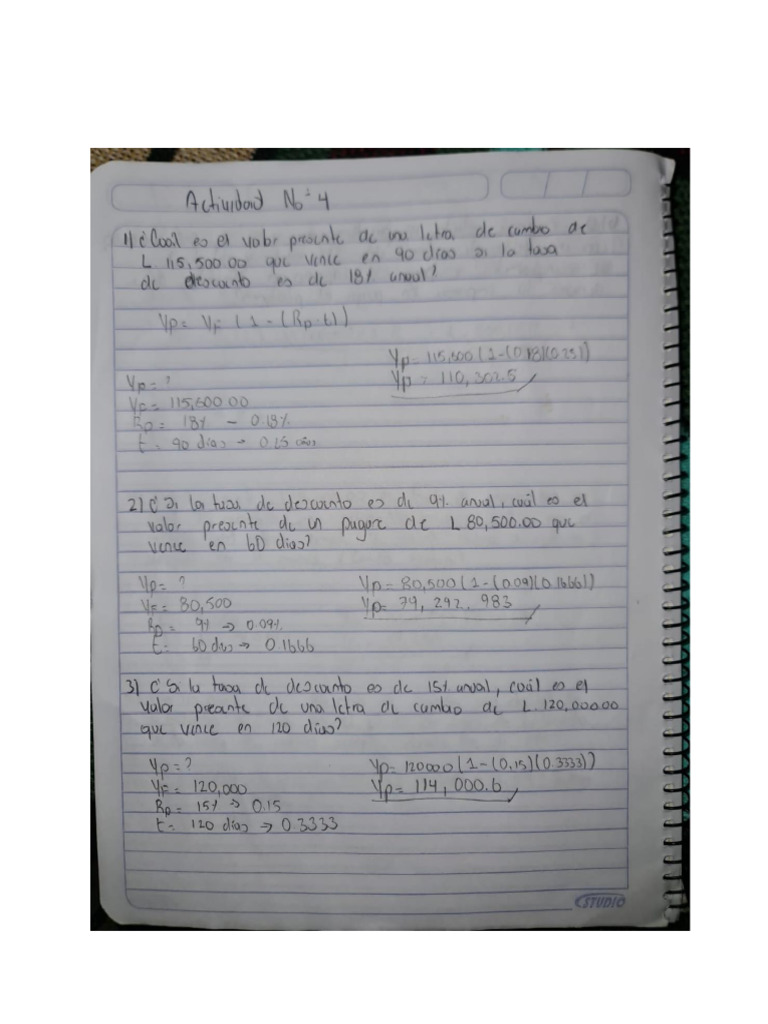 Actividad No = 4
1) ¿Cual es el valor presente de una letra de cambio de
L 115,500.00 que vence en 90 dias si la tasa
de descuento es de 18% anual?
Vp = VF (1 - (Rp·t))
Vp = 115,500 (1-(0.18)(0.25))
Vp = ?
Vp = 110,302.5
VF = 115,500.00
Rp = 18% - 0.18%
t = 90 dias → 0.25 años
2) ¿Si la tasa de descuento es de 9% anual, cuál es el
valor presente de un pagare de L 80,500.00 que
vence en 60 dias?
Vp = ?
Vp = 80,500 (1-(0.09)(0.1666))
VF = 80,500
Vp = 79,292.983
Rp = 9% → 0.09%
t = 60 dias → 0.1666
3) ¿Si la tasa de descuento es de 15% anual, cuál es el
valor presante de una letra de cambio de L. 120,000.00
que vence en 120 dias?
Vp = ?
Vp = 120000 (1-(0.15)(0.3333))
VF = 120,000
Vp = 114,000.6
Rp = 15% → 0.15
t = 120 dias → 0.3333
STUDIO